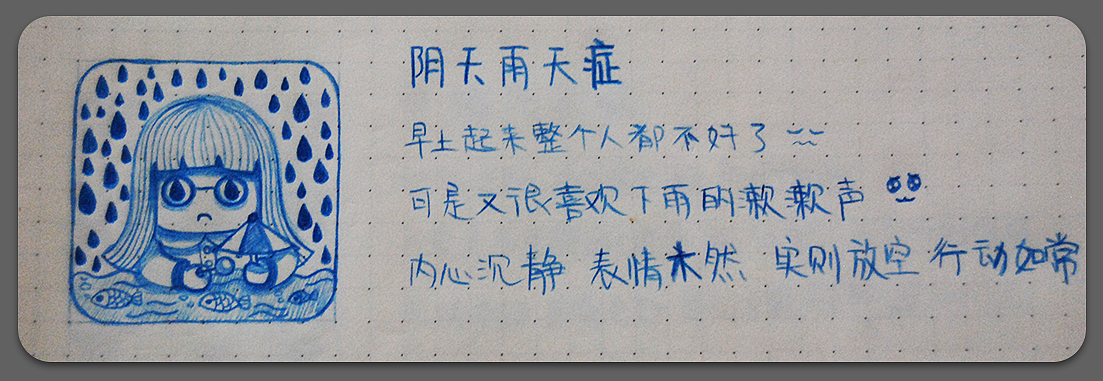 阴天雨天症
早上起来整个人都不好了
可是又很喜欢下雨的漱漱声
内心沉静 表情木然 实则放空 行动如常